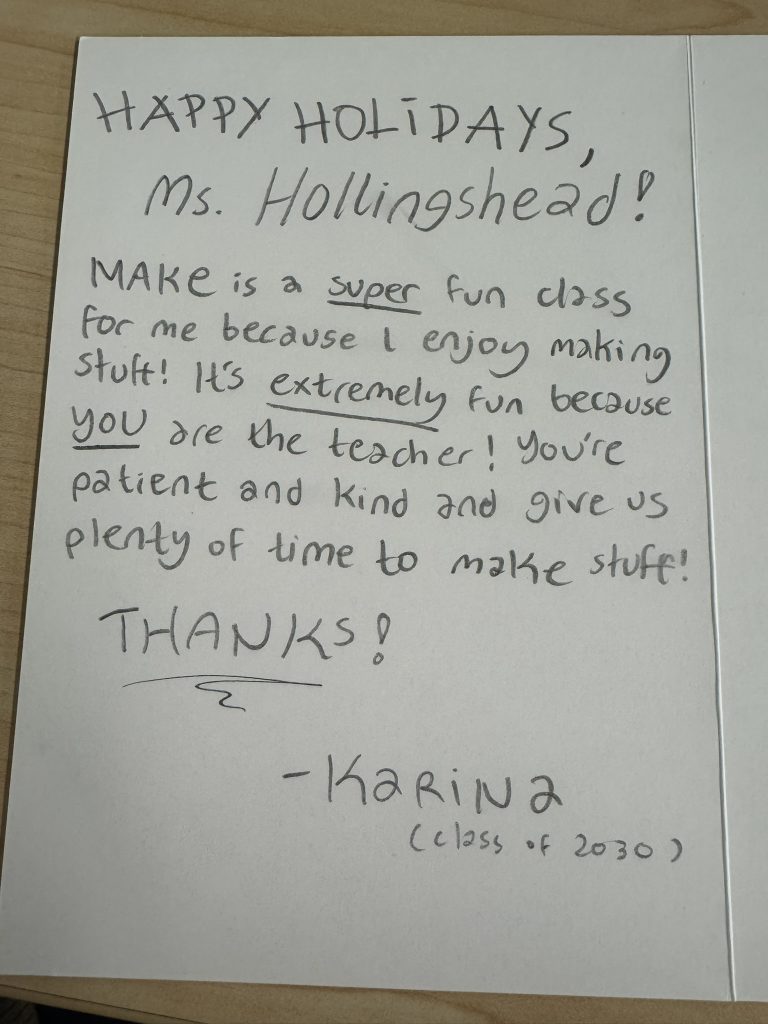 HAPPY HOLiDAYS,
Ms. Hollingshead!
MAKe is a super fun class
for me because I enjoy making
stuff! It's extremely fun because
you are the teacher! You're
patient and kind and give us
plenty of time to make stuff!
THANKS!
-KaRiNa
(class of 2030)